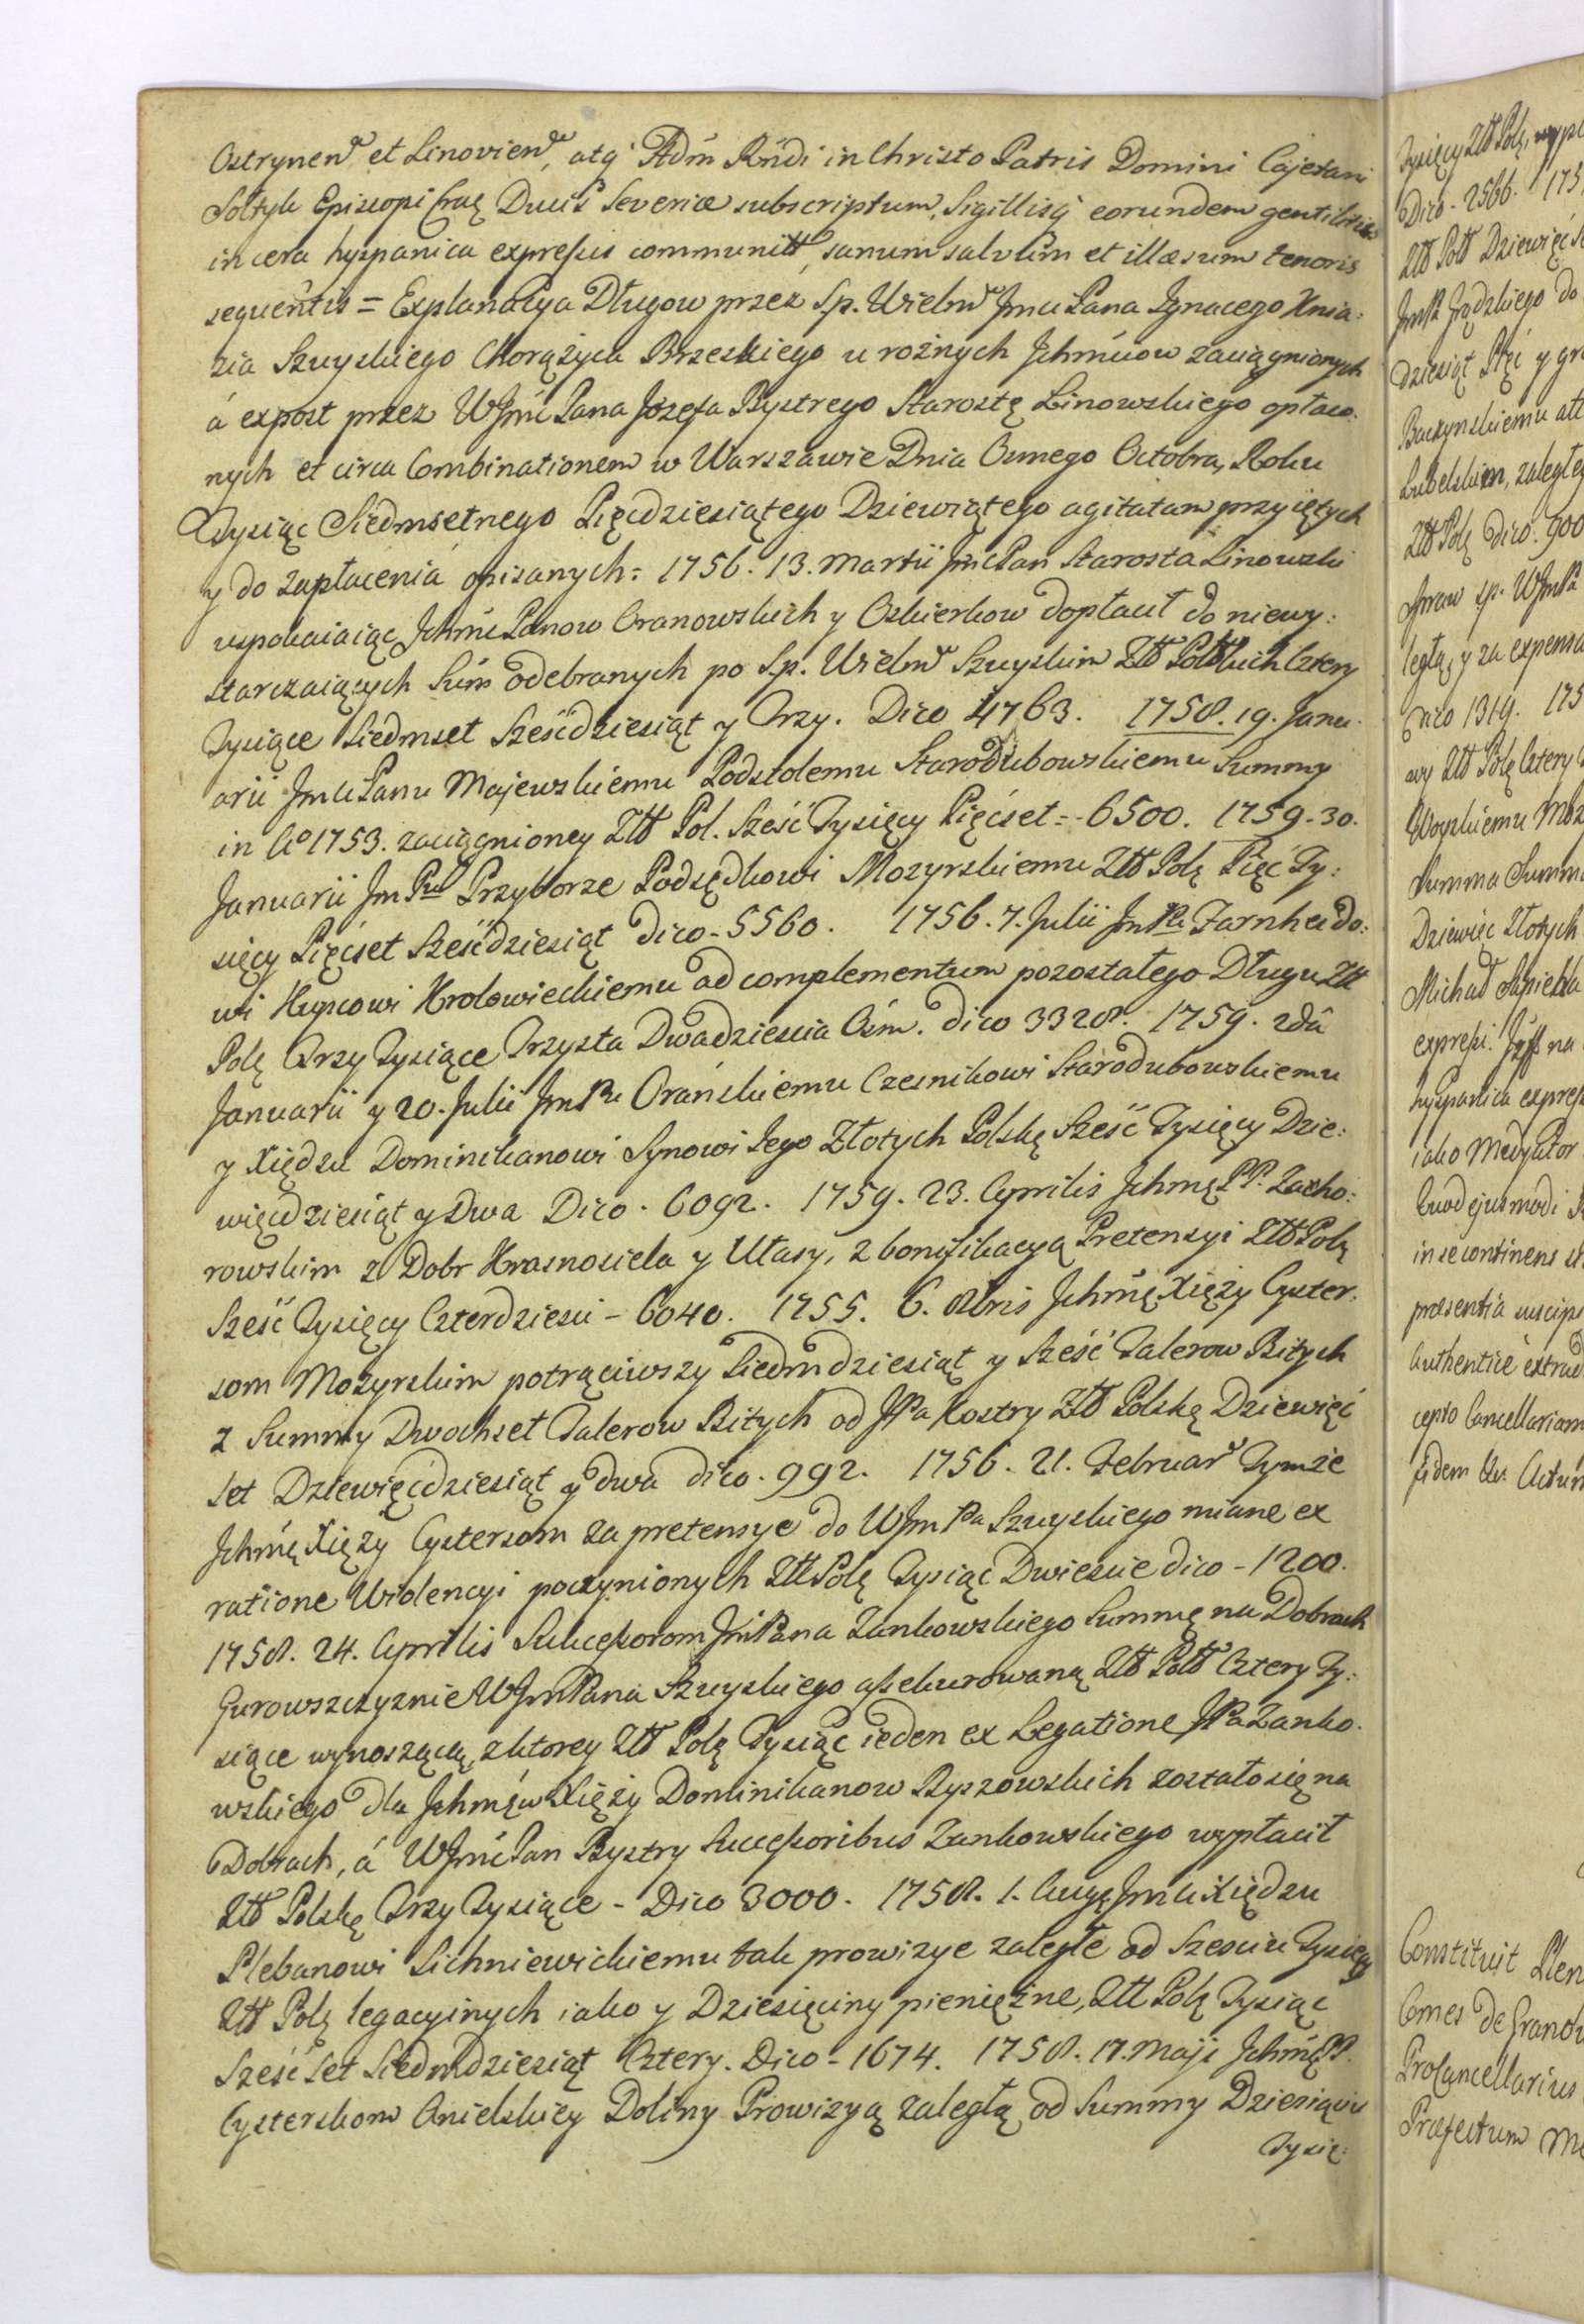 Ostrynen. et Linovien., atq. Adm Rndi in Christo Patris Domini Cajetani
Sołtyk Episcopi Crac. Ducis Severiæ subscriptum, Sigillisq. eorundem gentilitiis
in cera hyspanica expressis communitt, sanum salvum et illæsum tenoris
sequentis = Explanacya Długow przez S.p. Wielm Jmci Pana Ignacego Knia:
zia Szuyskiego Chorążyca Brzeskiego u rożnych Ichmciow zaciągnionych
á expost przez WJmć Pana Jozefa Bystrego Starostę Linowskiego opłaco:
nych et circa Combinationem w Warszawie Dnia Osmego Octobra, Roku
Tysiąc Siedmsetnego Pięcdziesiątego Dziewiątego agitatam przyiętych
y do zapłacenia opisanych: 1756. 13. Martii Jmć Pan Starosta Linowski
uspokaiaiąc Ichmć Panow Oranowskich y Oskierkow dopłacił do niewy:
starczaiących Sum odebranych po S.p. Wielm Szuyskim Złł Polskich Cztery
Tysiące Siedmset Szesćdziesiąt y Trzy. Dico 4763. 1758. 19. Janu:
arii Jmci Panu Majewskiemu Podstolemu Starodubowskiemu Summy
in Ao 1753. zaciągnioney Złł Pol. Sześć Tysięcy Pięćset = 6500. 1759. 30.
Januarii Jm Pnu Przyborze Podsędkowi Mozyrskiemu Złł Polę Pięć Ty:
sięcy Pięćset Sześćdziesiąt dico - 5560. 1756. 7. Julii Jm Pu Farnheido:
wi Kupcowi Krolowieckiemu ad complementum pozostałego Długu Złł
Polę Trzy Tysiące Trzysta Dwadziescia Osm. dico 3328. 1759. 2da
Januarii y 20. Julii Jm Pu Orańskiemu Czesnikowi Starodubowskiemu
y Xiędzu Dominikanowi Synowi Jego Złotych Polskę Sześć Tysięcy Dzie:
więcdziesiąt y Dwa Dico. 6092. 1759. 23. Aprilis Ichmę PP. Zacho:
rowskim z Dobr Krasnosiela y Ułasy, z bonifikacyą Pretensyi Złł Polę
Sześć Tysięcy Czterdziesci - 6040. 1755. 6. 8bris Ichmę Xięży Cyster:
som Mozyrskim potrąciwszy Siedmdziesiąt y Sześć Talerow Bitych
z Summy Dwochset Talerow Bitych od JPa Kostry Złł Polskę Dziewięć
set Dziewięćdziesiąt y dwa dico. 992. 1756. 21. Februar Tymże
Ichmę Xięży Cystersom za pretensye do WJm Pa Szuyskiego miane ex
ratione Wiolencyi poczynionych Złł Polę Tysiąc Dwiescie dico - 1200.
1758. 24. Aprilis Sukcessorom Jm Pana Zankowskiego Summę na Dobrach
Gurowszczyznie WJm Pana Szuyskiego assekurowaną Złł Polł Cztery Ty:
siące wynoszącą, z ktorey Złł Polę Tysiąc ieden ex Legatione JPa Zanko:
wskiego dla Ichmćw Xięży Dominikanow Ryszowskich zostało się na
Dobrach, á WJmć Pan Bystry Sukcessoribus Zankowskiego wypłacił
Złł Polskę Trzy Tysiące - Dico 3000. 1758. 1. Augę Jmci Xiędzu
Plebanowi Lichniewickiemu tak prowizye zaległe od Szesciu Tysięcy
Złł Polę legacyinych iako y Dziesięciny pieniężne, Złł Polę Tysiąc
Sześć set Siedmdziesiąt Cztery. Dico - 1674. 1758. 17. Maji Ichmę PP.
Cysterskom Anielskiey Doliny Prowizyą zaległą od Summy Dziesiąciu
Tysię:
Tysięcy Złł Polę, wypł
Dico - 2566. 175
Złł Polł Dziewięć
do
dziesiąt Pięć y gr
Buczynskiemu
Lubelskim, zaległe
Złł Polę Dico. 900
Spraw s.p. WJm Pa
ległą, y za expensa
Dico 1319. 175
Złł Polę Cztery
Woyskiemu Moz
Summa Summ
Dziewięć Złotych
Michał Sapieha
expressi.
hyspanica expres
iako Medyator
Quod ejusmodi
in se continens
præsentia suscip
Authentice extrad
cepto Cancellariam
fidem
Constituit Plen
Comes de Granow
ProCancellarius
Præfectum